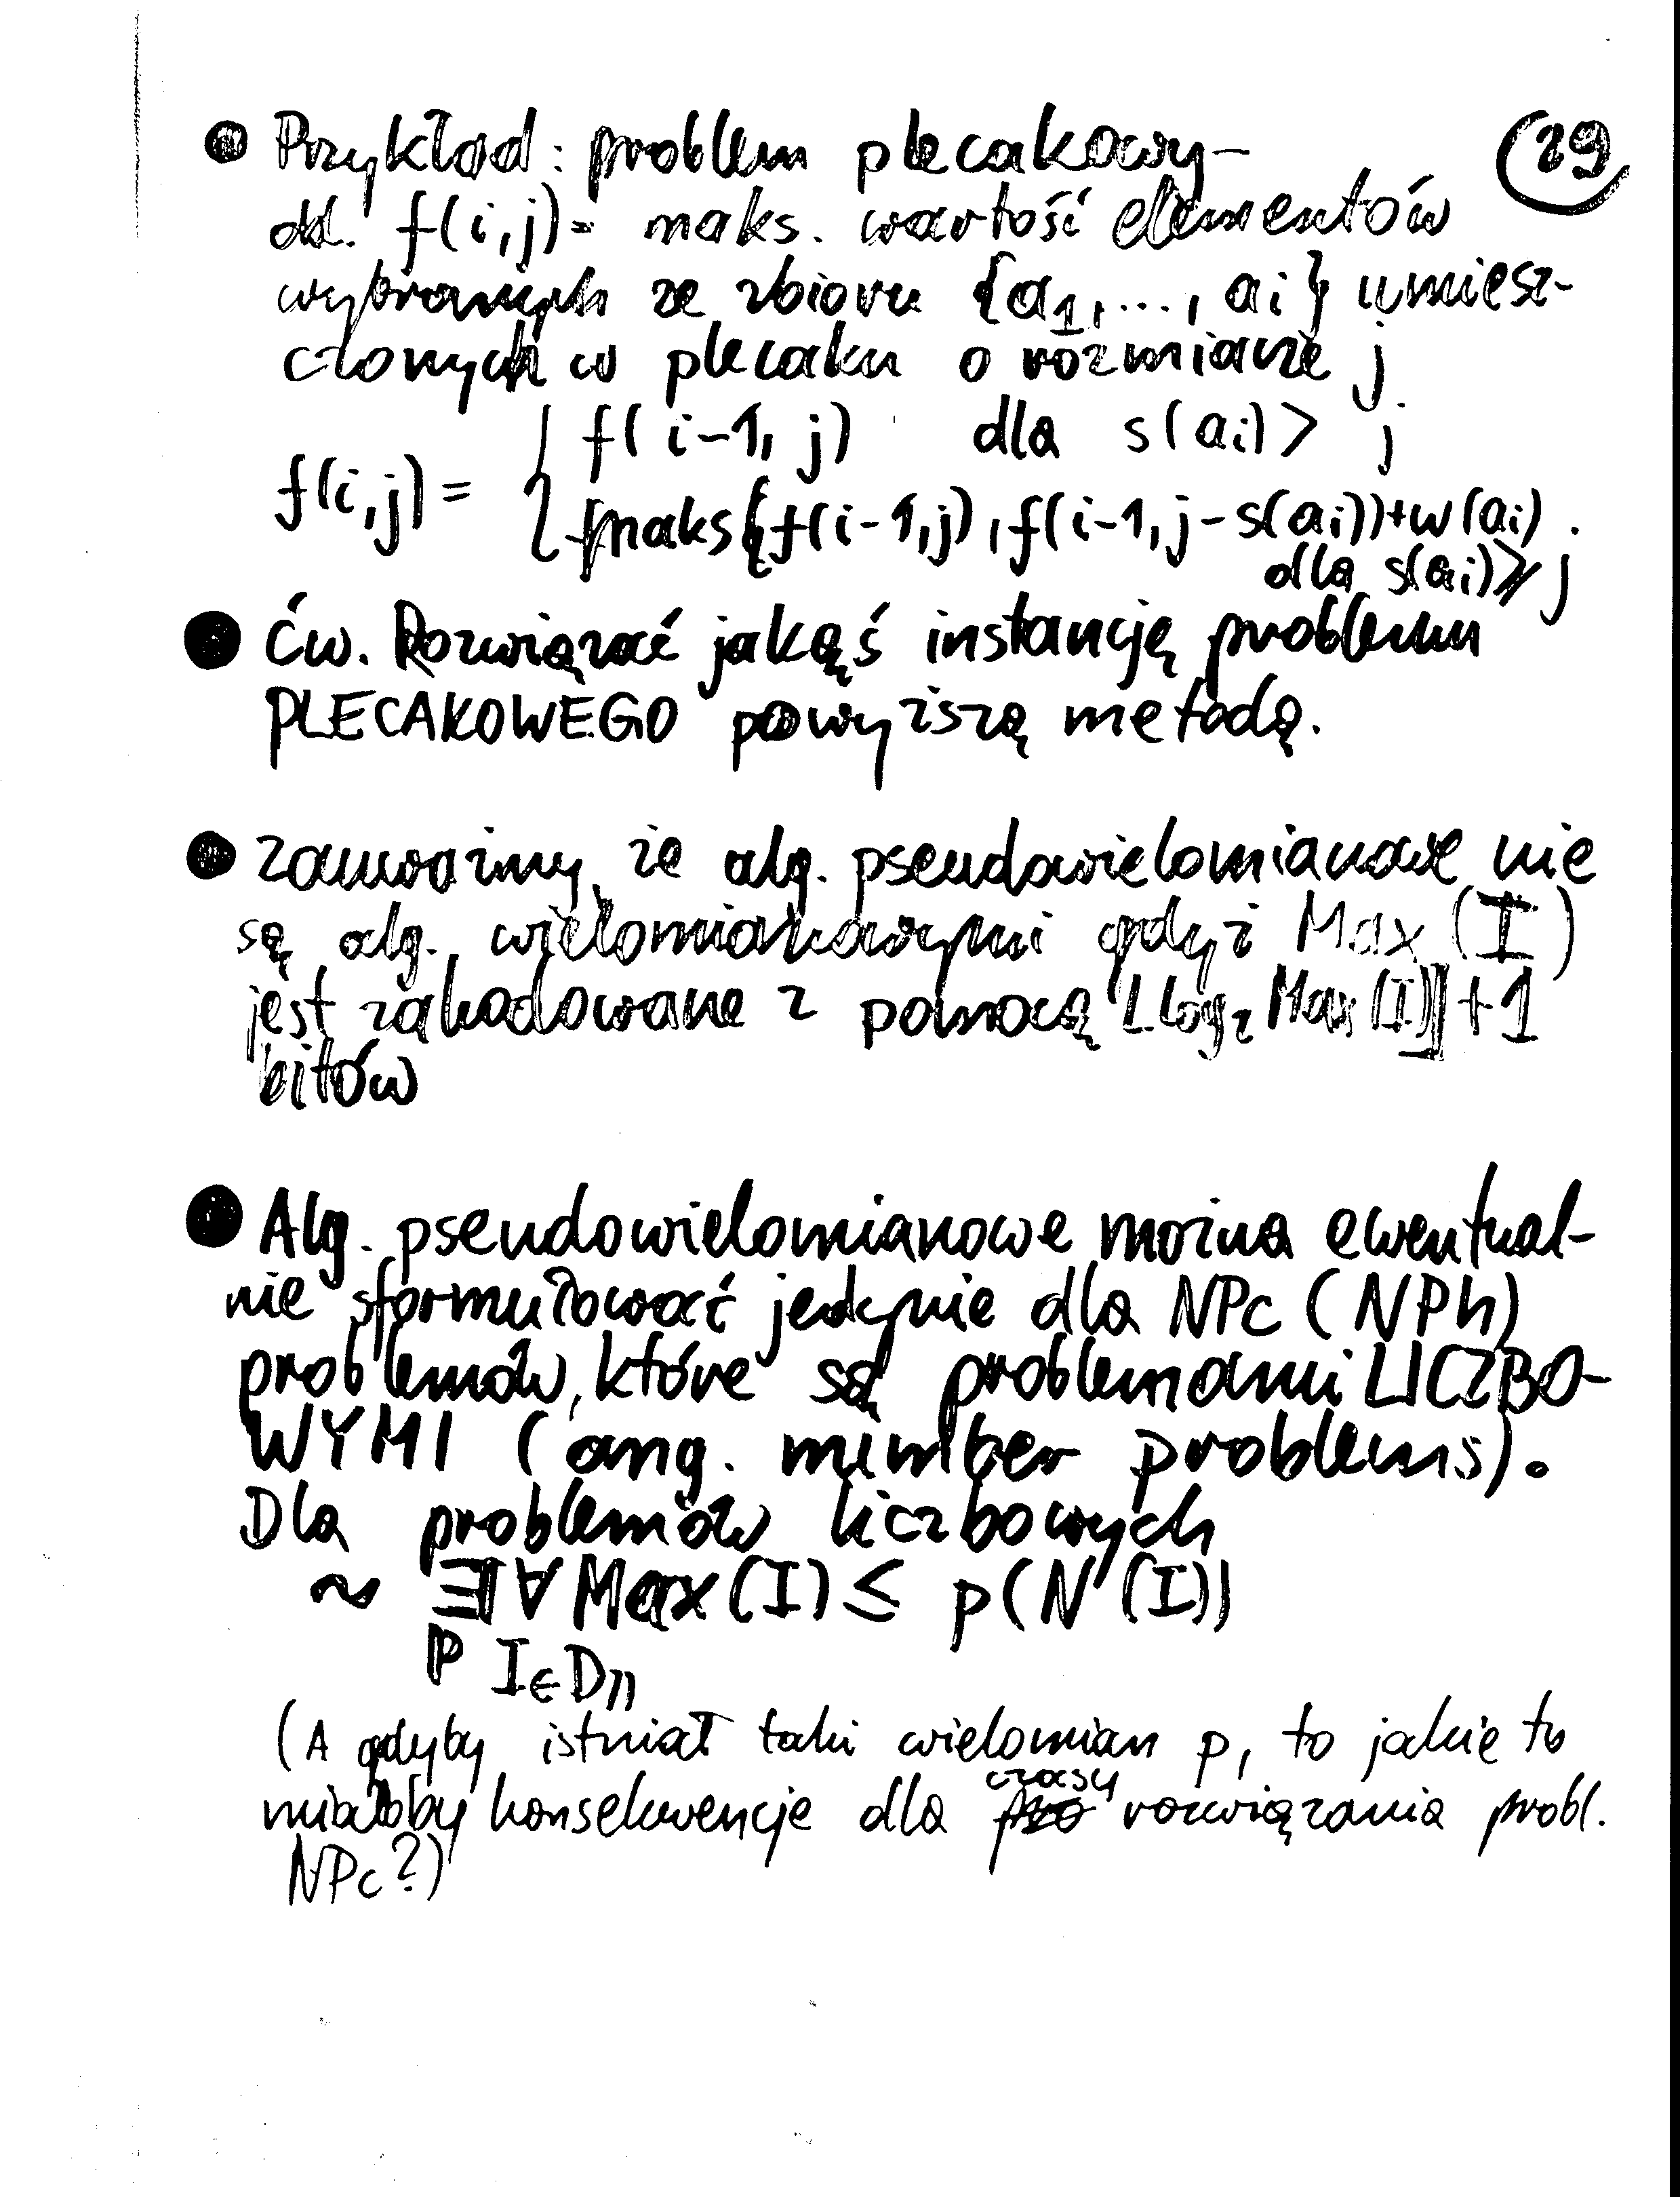 • Przykład: problem plecakowy – 29
dd. f(i,j) = maks. wartość elementów
wybranych ze zbioru {a₁, ..., aᵢ} umiesz-
czonych w plecaku o rozmiarze j
f(i,j) = { f(i-1, j) dla s(aᵢ) > j
maks{f(i-1,j), f(i-1, j-s(aᵢ))+w(aᵢ)
dla s(aᵢ) ≥ j
• Ćw. Rozwiązać jakąś instancję problemu
PLECAKOWEGO powyższą metodą.
• Zauważmy, że alg. pseudowielomianowe nie
są alg. wielomianowymi gdyż Max(I)
jest zakodowane z pomocą ⌊log₂ Max(I)⌋+1
bitów
• Alg. pseudowielomianowe można ewentual-
nie sformułować jedynie dla NPc (NPh)
problemów, które są problemami LICZBO-
WYMI (ang. number problems).
Dla problemów liczbowych
~ ∃ ∀ Max(I) ≤ p(N(I))
p I∈D∏
(A gdyby istniał taki wielomian p, to jakie to
miałoby konsekwencje dla czasu rozwiązania probl.
NPc?)